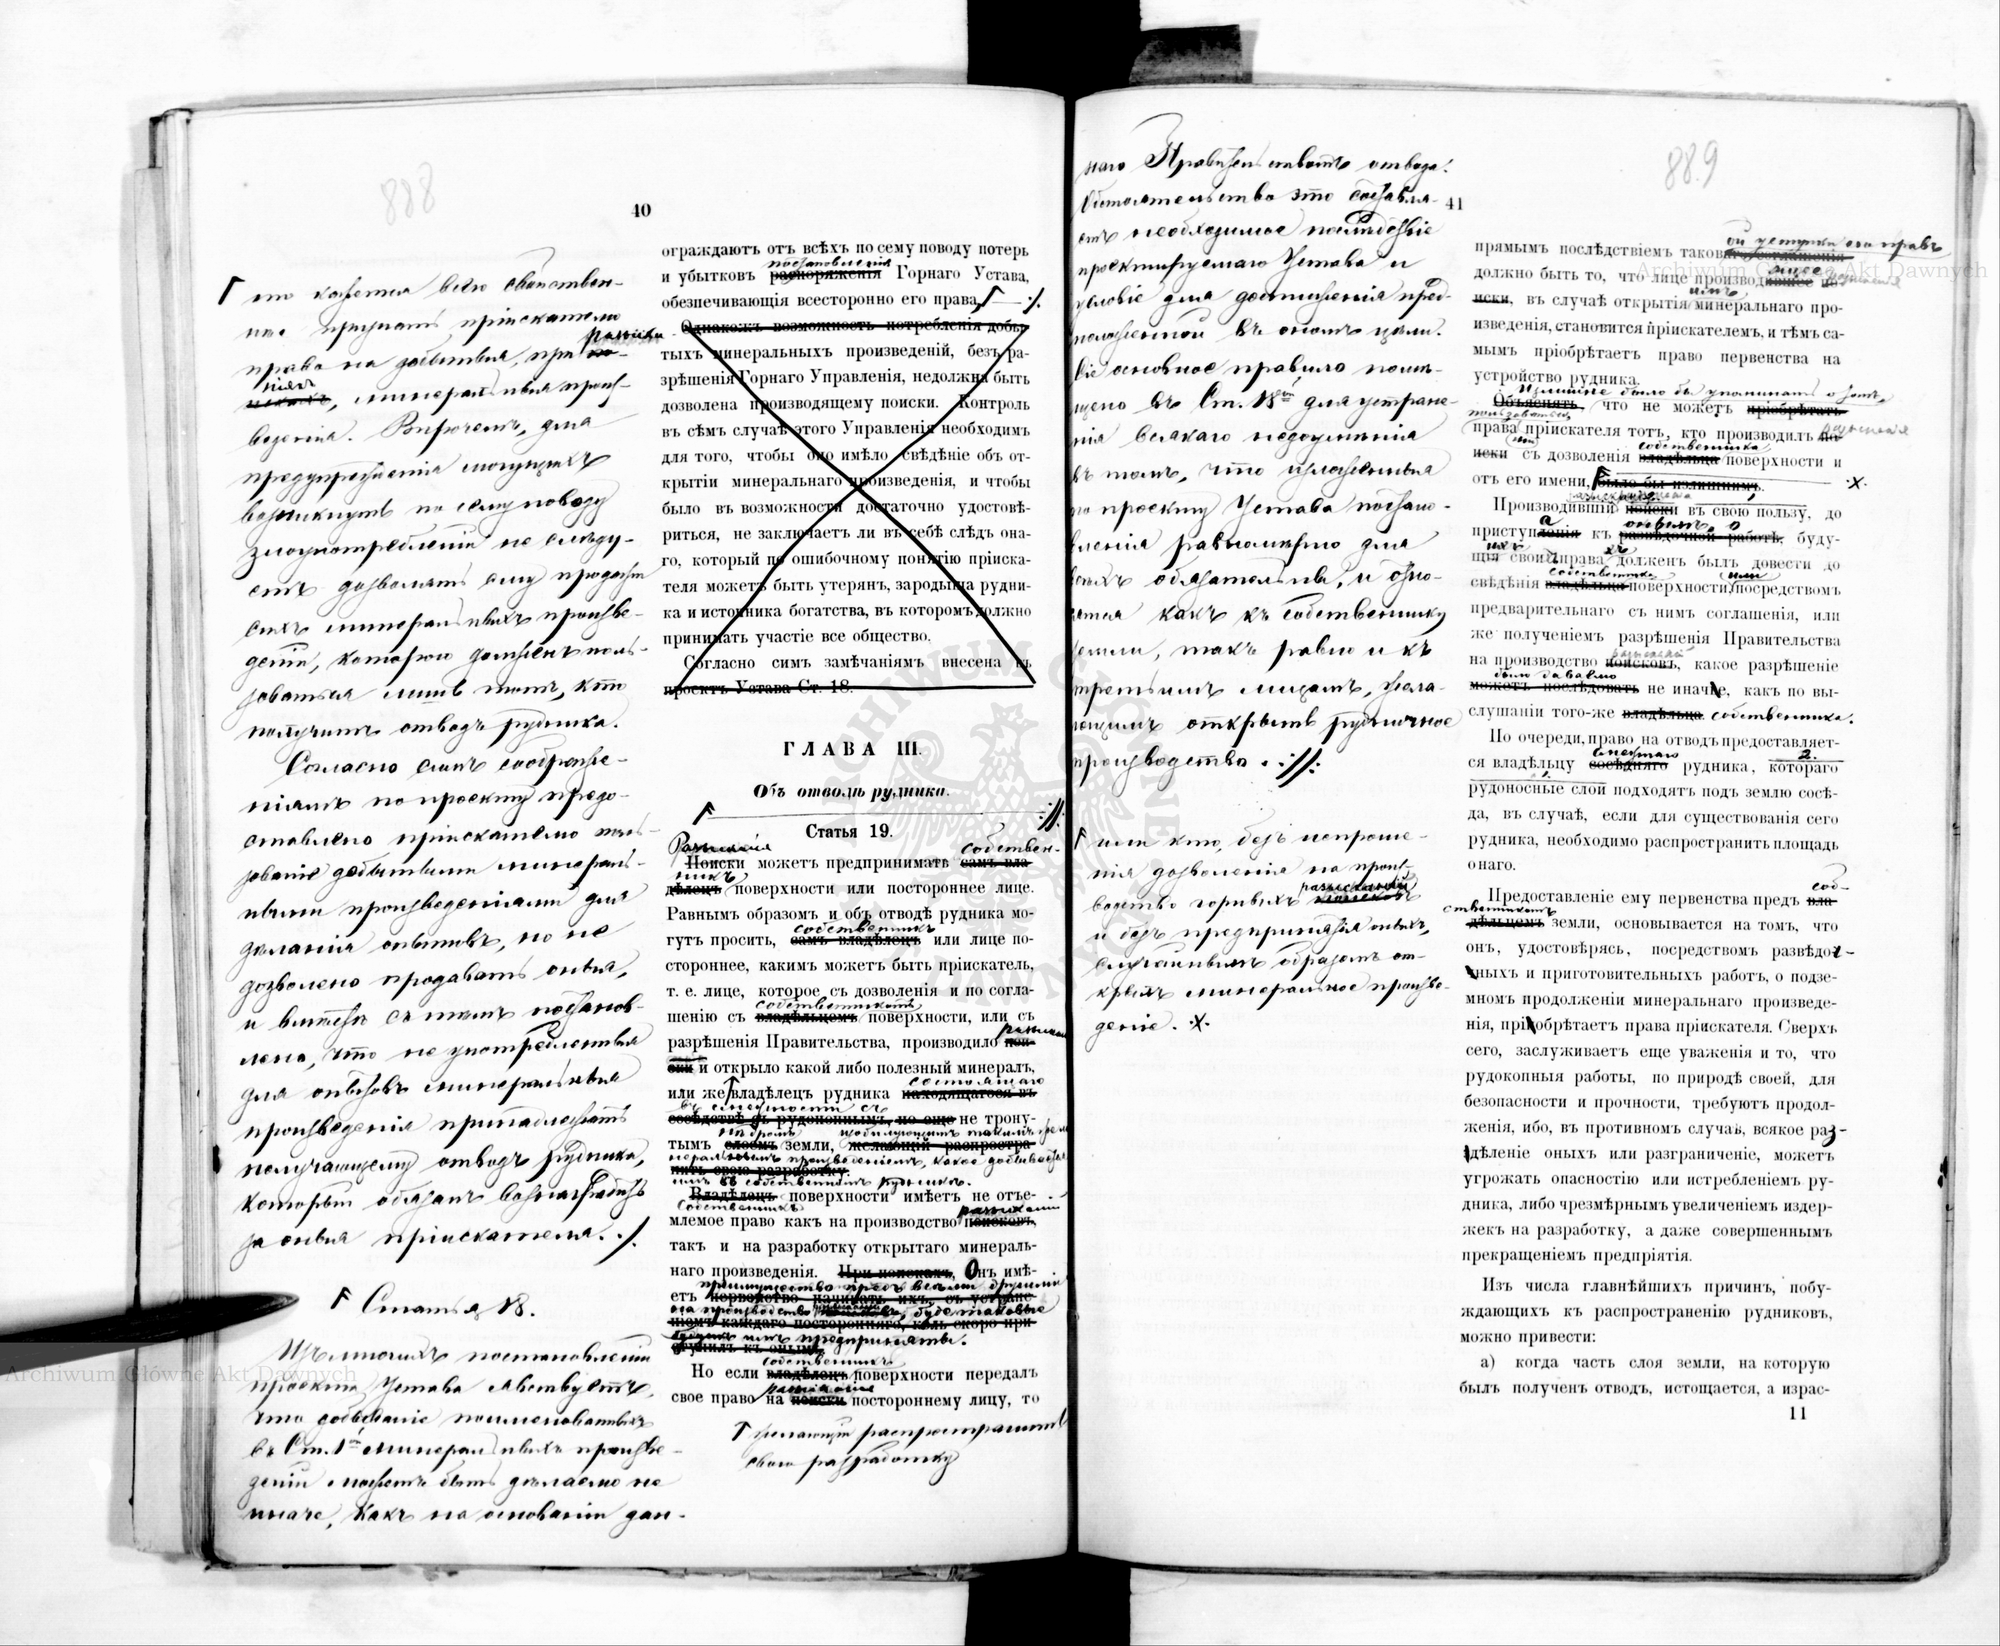 888
40
это кажется всего свойствен-
нѣе признать пріискателю
права на добытыя, при
минеральныя произ-
веденія. Впрочемъ, для
предупрежденія могущихъ
возникнуть по сему поводу
злоупотребленій не слѣду-
етъ дозволять ему продажи
сихъ минеральныхъ произве-
деній, которою долженъ поль-
зоваться лишь тотъ, кто
получитъ отводъ рудника.
Согласно симъ соображе-
ніямъ по проекту предо-
ставлено пріискателю поль-
зованіе добытыми минераль-
ными произведеніями для
дѣланія опытовъ, но не
дозволено продавать оныя,
и вмѣстѣ съ тѣмъ постанов-
лено, что не употребленныя
для опытовъ минеральныя
произведенія принадлежатъ
получающему отводъ рудника,
который обязанъ вознаградить
за оныя пріискателя. ./.
Статья 18.
Изъ многихъ постановленій
проекта Устава явствуетъ,
что добываніе поименованныхъ
въ Ст. 1ой минеральныхъ произве-
деній можетъ быть дѣлаемо не
иначе, какъ на основаніи дан-
ограждаютъ отъ всѣхъ по сему поводу потерь
постановленія
и убытковъ распоряженія Горнаго Устава,
обезпечивающія всесторонно его права,
Однакожъ возможность потребленія добы-
тыхъ минеральныхъ произведеній, безъ ра-
зрѣшенія Горнаго Управленія, недолжна быть
дозволена производящему поиски. Контроль
въ сѣмъ случаѣ этого Управленія необходимъ
для того, чтобы оно имѣло свѣдѣніе объ от-
крытіи минеральнаго произведенія, и чтобы
было въ возможности достаточно удостовѣ-
риться, не заключаетъ ли въ себѣ слѣдъ она-
го, который по ошибочному понятію пріиска-
теля можетъ быть утерянъ, зародыша рудни-
ка и источника богатства, въ которомъ должно
принимать участіе все общество.
Согласно симъ замѣчаніямъ внесена въ
проектъ Устава Ст. 18.
ГЛАВА III.
Объ отводѣ рудника.
Статья 19.
Розысканія собствен-
Поиски можетъ предпринимать самъ вла-
никъ
дѣлецъ поверхности или постороннее лице.
Равнымъ образомъ и объ отводѣ рудника мо-
собственникъ
гутъ просить, самъ владѣлецъ или лице по-
стороннее, какимъ можетъ быть пріискатель,
т. е. лице, которое съ дозволенія и по согла-
собственникомъ
шенію съ владѣльцемъ поверхности, или съ
разрѣшенія Правительства, производило пои-
ски и открыло какой либо полезный минералъ,
состоящаго
или же владѣлецъ рудника находящагося въ
въ смежности съ
сосѣдствѣ съ рудоноснымъ, но еще не трону-
тымъ слоемъ земли, желающій распростра-
нить свою разработку.
имъ въ собственномъ рудникѣ.
Владѣлецъ поверхности имѣетъ не отъе-
Собственникъ
млемое право какъ на производство поисковъ,
такъ и на разработку открытаго минераль-
наго произведенія. При поискахъ, Онъ имѣ-
преимущество предъ всѣми другими
етъ первенство начинать ихъ, съ устране-
ніемъ каждаго посторонняго, коль скоро при-
ступилъ къ онымъ.
предприняты.
собственникъ
Но если владѣлецъ поверхности передалъ
свое право на поиски постороннему лицу, то
желающій распространить
свою разработку
889
41
наго Правительствомъ отвода.
Обстоятельство это составля-
етъ необходимое послѣдствіе
проектируемаго Устава и
условіе для достиженія пред-
положенной въ ономъ цѣли.
Сіе основное правило помѣ-
щено въ Ст. 18ой для устране-
нія всякаго недоумѣнія
въ томъ, что изложенныя
по проекту Устава постано-
вленія равномѣрно для
всѣхъ обязательны, и отно-
сятся какъ къ собственнику
земли, такъ равно и къ
третьимъ лицамъ, жела-
ющимъ открыть рудничное
производство .://:
или кто, безъ испроше-
нія дозволенія на произ-
розысканій
водство горныхъ поисковъ
и безъ предпринятія оныхъ,
случайнымъ образомъ от-
крылъ минеральное произве-
деніе. .х.
ой уступки его правъ
прямымъ послѣдствіемъ таковаго соглашенія
должно быть то, что лице производившее по-
иски, въ случаѣ открытія минеральнаго про-
изведенія, становится пріискателемъ, и тѣмъ са-
мымъ пріобрѣтаетъ право первенства на
устройство рудника.
Излишне было бы упоминать о томъ,
Объяснять, что не можетъ пріобрѣтать
пользоваться
права пріискателя тотъ, кто производилъ по-
собственника
иски съ дозволенія владѣльца поверхности и
отъ его имени, было бы излишнимъ. .х.
Производившій поиски въ свою пользу, до
приступленія къ развѣдочной работѣ, буду-
щія свои права долженъ былъ довести до
собственника или
свѣдѣнія владѣльца поверхности, посредствомъ
предварительнаго съ нимъ соглашенія, или
же полученіемъ разрѣшенія Правительства
на производство поисковъ, какое разрѣшеніе
было даваемо
можетъ послѣдовать не иначе, какъ по вы-
слушаніи того-же владѣльца собственника.
По очереди, право на отводъ предоставляет-
смежнаго
ся владѣльцу сосѣдняго рудника, котораго
рудоносные слои подходятъ подъ землю сосѣ-
да, въ случаѣ, если для существованія сего
рудника, необходимо распространить площадь
онаго.
соб-
Предоставленіе ему первенства предъ вла-
ственникомъ
дѣльцемъ земли, основывается на томъ, что
онъ, удостовѣрясь, посредствомъ развѣдоч-
ныхъ и приготовительныхъ работъ, о подзе-
мномъ продолженіи минеральнаго произведе-
нія, пріобрѣтаетъ права пріискателя. Сверхъ
сего, заслуживаетъ еще уваженія и то, что
рудокопныя работы, по природѣ своей, для
безопасности и прочности, требуютъ продол-
женія, ибо, въ противномъ случаѣ, всякое раз-
дѣленіе оныхъ или разграниченіе, можетъ
угрожать опасностію или истребленіемъ ру-
дника, либо чрезмѣрнымъ увеличеніемъ издер-
жекъ на разработку, а даже совершеннымъ
прекращеніемъ предпріятія.
Изъ числа главнѣйшихъ причинъ, побу-
ждающихъ къ распространенію рудниковъ,
можно привести:
а) когда часть слоя земли, на которую
былъ полученъ отводъ, истощается, а израс-
11
Archiwum Główne Akt Dawnych
Archiwum Główne Akt Dawnych